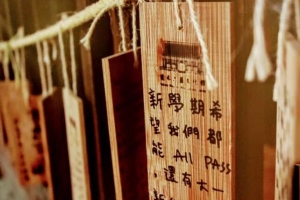 新學期希
望我們都
能 All PASS
，還有大一